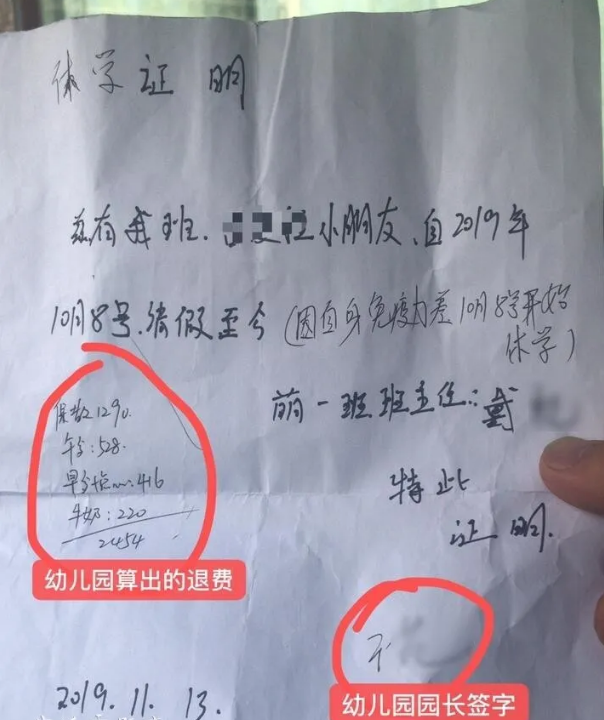 休学证明
兹有我班、小朋友、自2019年
10月8号.请假至今(因自身免疫力差10月8号开始
休学)
萌一班班主任:戴
保教1290.
午金:528.
早餐 416
牛奶:220
2454
特此
证明.
幼儿园算出的退费
于
幼儿园园长签字
2019.11.13.